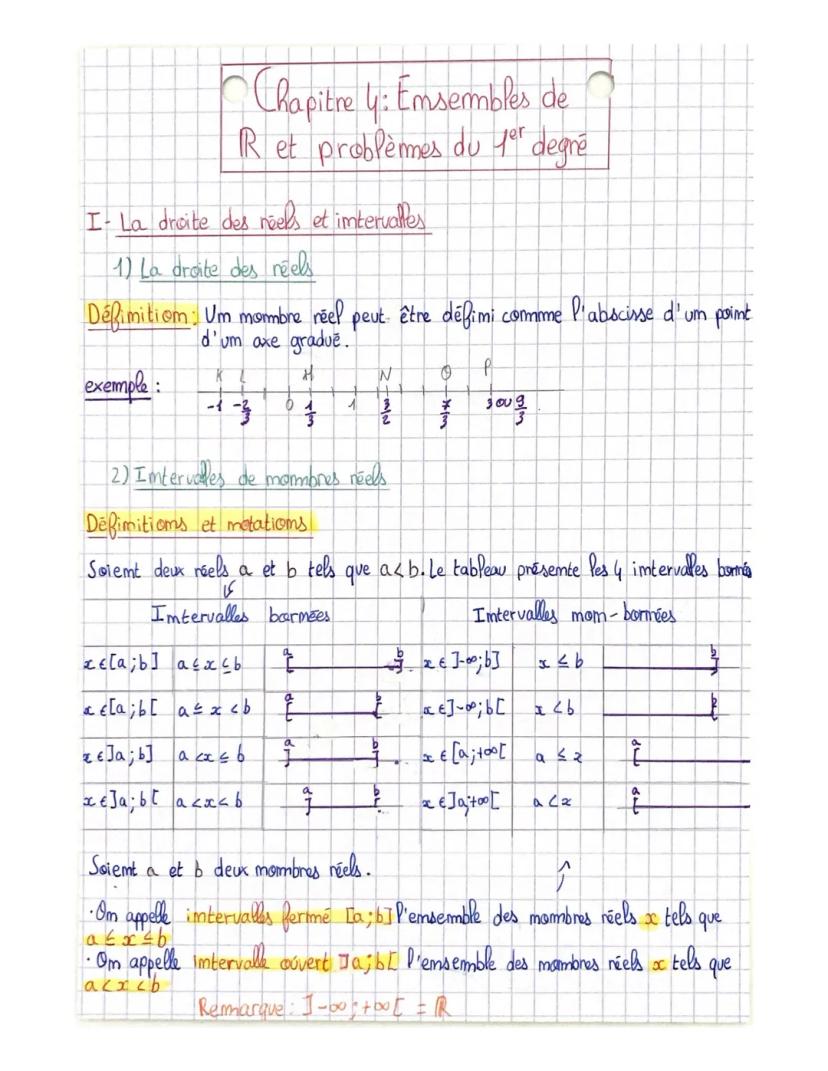 Chapitre 4: Ensembles de
ℝ et problèmes du 1er degré
I- La droite des réels et intervalles
1) La droite des réels
Définition: Un nombre réel peut être défini comme l'abscisse d'un point
d'un axe gradué.
exemple :
K L H N O P
-1 -2/3 0 1/3 1 3/2 7/3 3 ou 9/3
2) Intervalles de nombres réels
Définitions et notations
Soient deux réels a et b tels que a<b. Le tableau présente les 4 intervalles bornés
Intervalles bornées Intervalles non-bornées
x ∈ [a;b] a ≤ x ≤ b a b x ∈ ]-∞;b] x ≤ b b
x ∈ [a;b[ a ≤ x < b a b x ∈ ]-∞;b[ x < b b
x ∈ ]a;b] a < x ≤ b a b x ∈ [a;+∞[ a ≤ x a
x ∈ ]a;b[ a < x < b a b x ∈ ]a;+∞[ a < x a
Soient a et b deux nombres réels.
· On appelle intervalles fermé [a;b] l'ensemble des nombres réels x tels que
a ≤ x ≤ b
· On appelle intervalle ouvert ]a;b[ l'ensemble des nombres réels x tels que
a < x < b
Remarque : ]-∞;+∞[ = ℝ